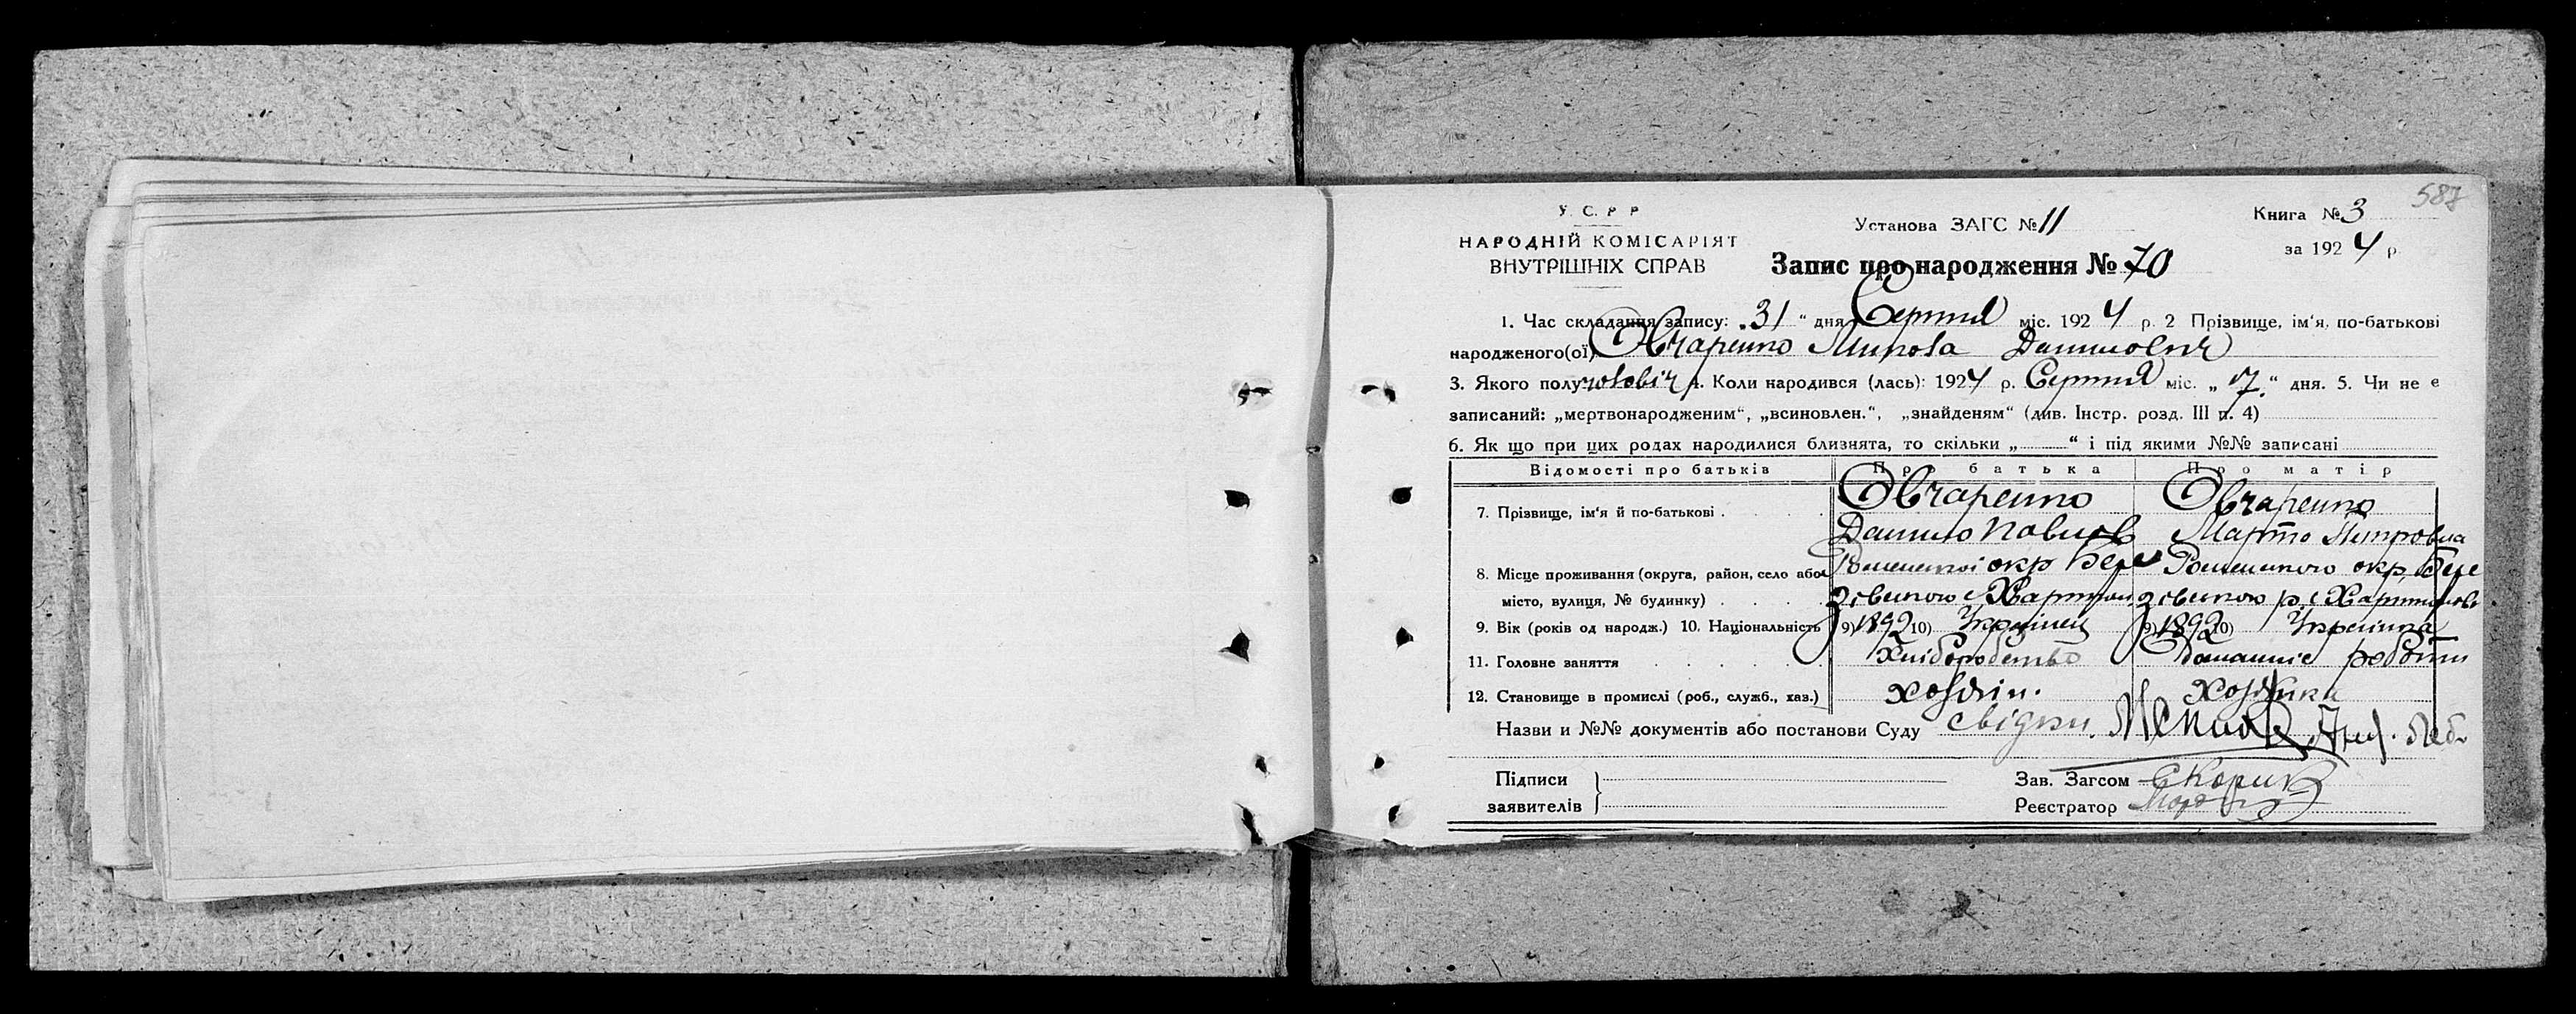 587
У. С. Р Р
НАРОДНІЙ КОМІСАРІЯТ
ВНУТРІШНІХ СПРАВ
Установа ЗАГС № 11
Книга № 3
за 1924 р.
Запис про народження № 70
1. Час складання запису: „31“ дня Серпня міс. 1924 р. 2 Прізвище, ім‘я, по-батькові
народженого(ої) Овчаренко Микола Данилович
3. Якого полу чоловіч 4. Коли народився (лась): 1924 р. Серпня міс. „17“ дня. 5. Чи не є
записаний: „мертвонародженим“, „всиновлен.“, „знайденям“ (див. Інстр. розд. III п. 4)
6. Як що при цих родах народилися близнята, то скільки „ “ і під якими №№ записані
Відомості про батьків Про батька Про матір
7. Прізвище, ім‘я й по-батькові Овчаренко Овчаренко
Данило Павлов Марта Петровна
8. Місце проживання (округа, район, село або Роменської окр Бере Роменського окр. Бере
місто, вулиця, № будинку) зівського с Хартон зівського р. с Хартиков
9. Вік (років од народж.) 10. Національність 9) 1892 10) Українец 9) 1892 10) Українка
11. Головне заняття Хліборобство Домашніе роботи
12. Становище в промислі (роб., служб., хаз.) Хозяїн. Хозяйка
Назви и №№ документів або постанови Суду свідки.
Підписи
заявителів
Зав. Загсом
Реєстратор